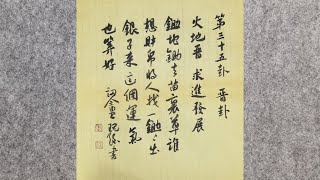 第三十五卦 晋卦
火地晋 求進發展
鋤地鋤去苗裏草誰
想財帛將人找一鋤〻出
銀子來這個運氣
也算好